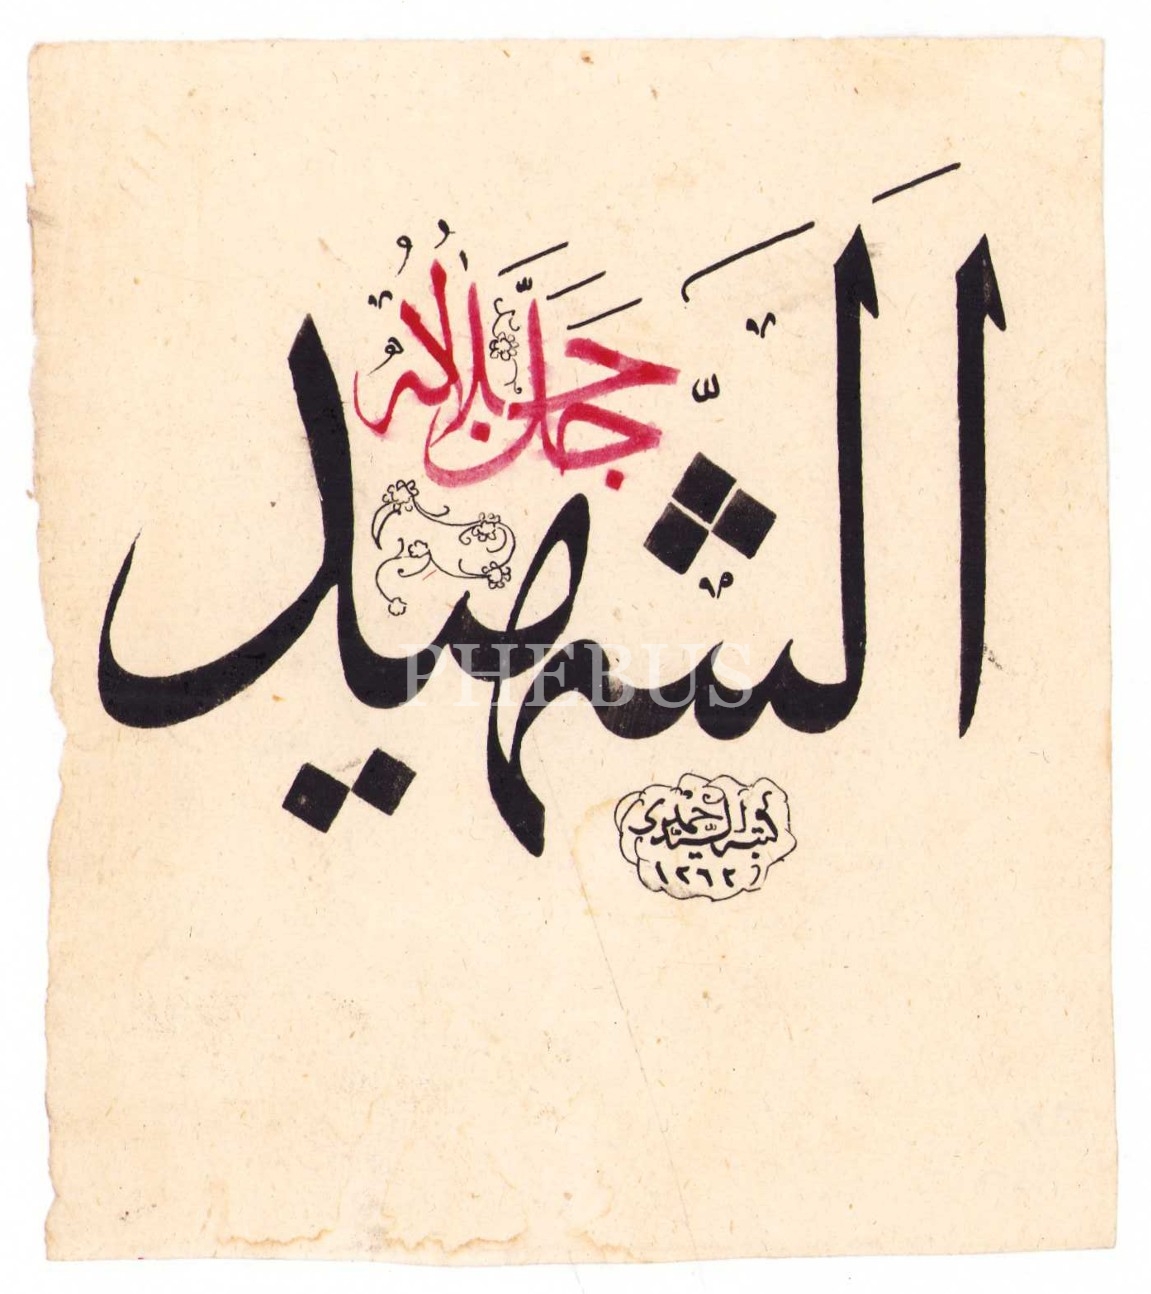 اَلشَّهيد
جَلَّ جَلَالُهُ
كتبه السيد حمدي
١٢٦٢
PHEBUS